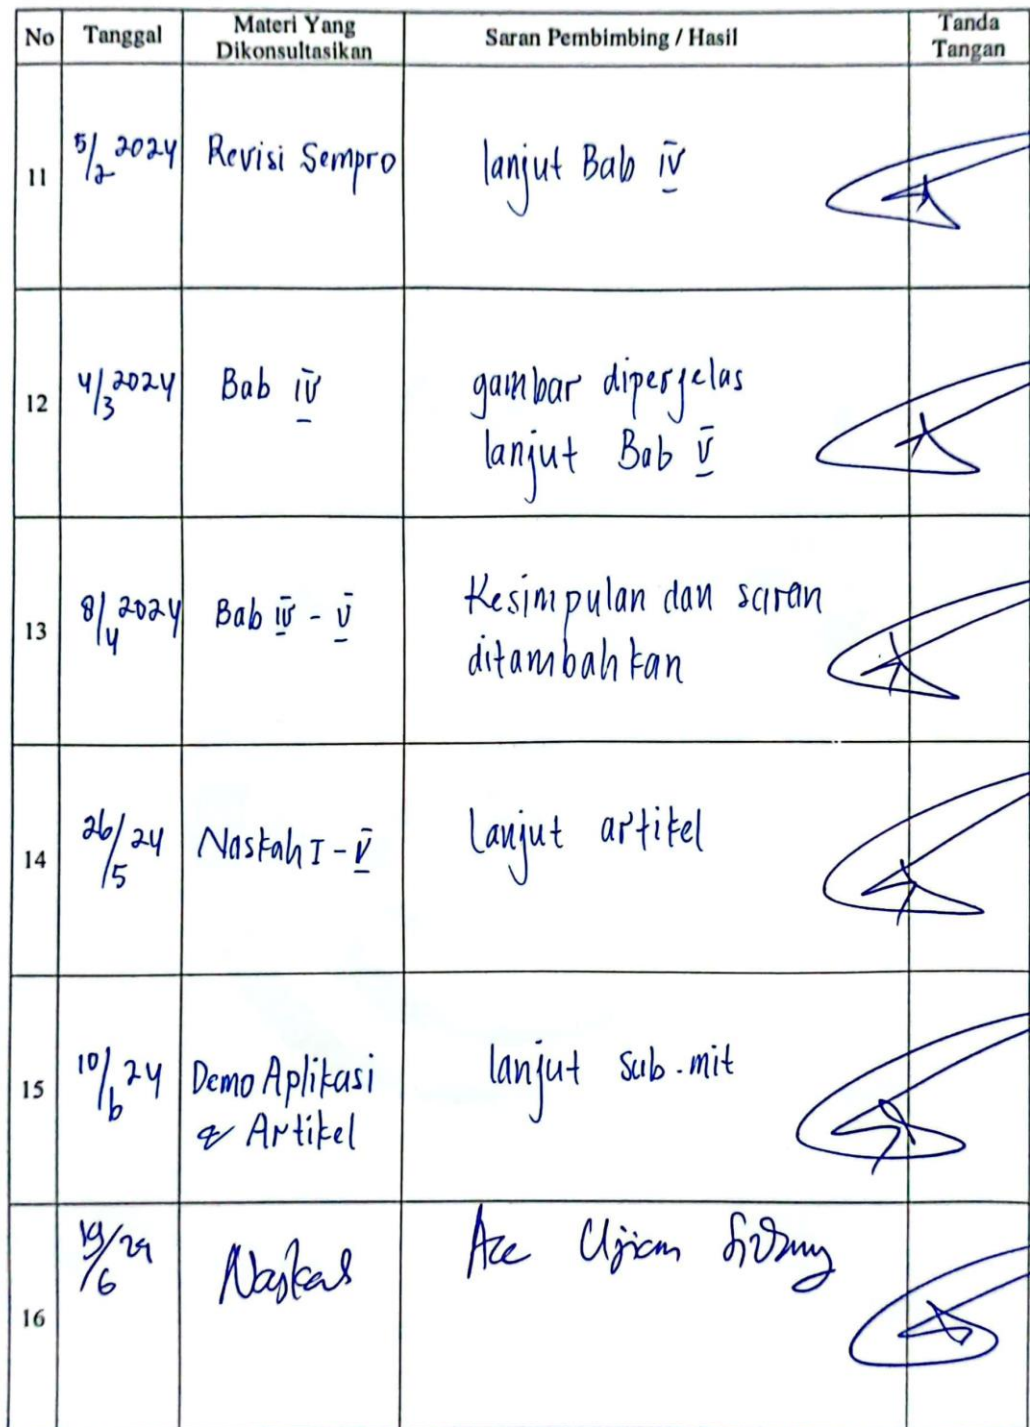 No Tanggal Materi Yang Dikonsultasikan Saran Pembimbing / Hasil Tanda Tangan
11 5/2 2024 Revisi Sempro lanjut Bab IV
12 4/3 2024 Bab IV gambar diperjelas
lanjut Bab V
13 8/4 2024 Bab IV - V Kesimpulan dan saran
ditambahkan
14 26/5 24 Naskah I - V lanjut artikel
15 10/6 24 Demo Aplikasi lanjut sub.mit
& Artikel
16 19/6 24 Naskah Acc Ujian Sidang